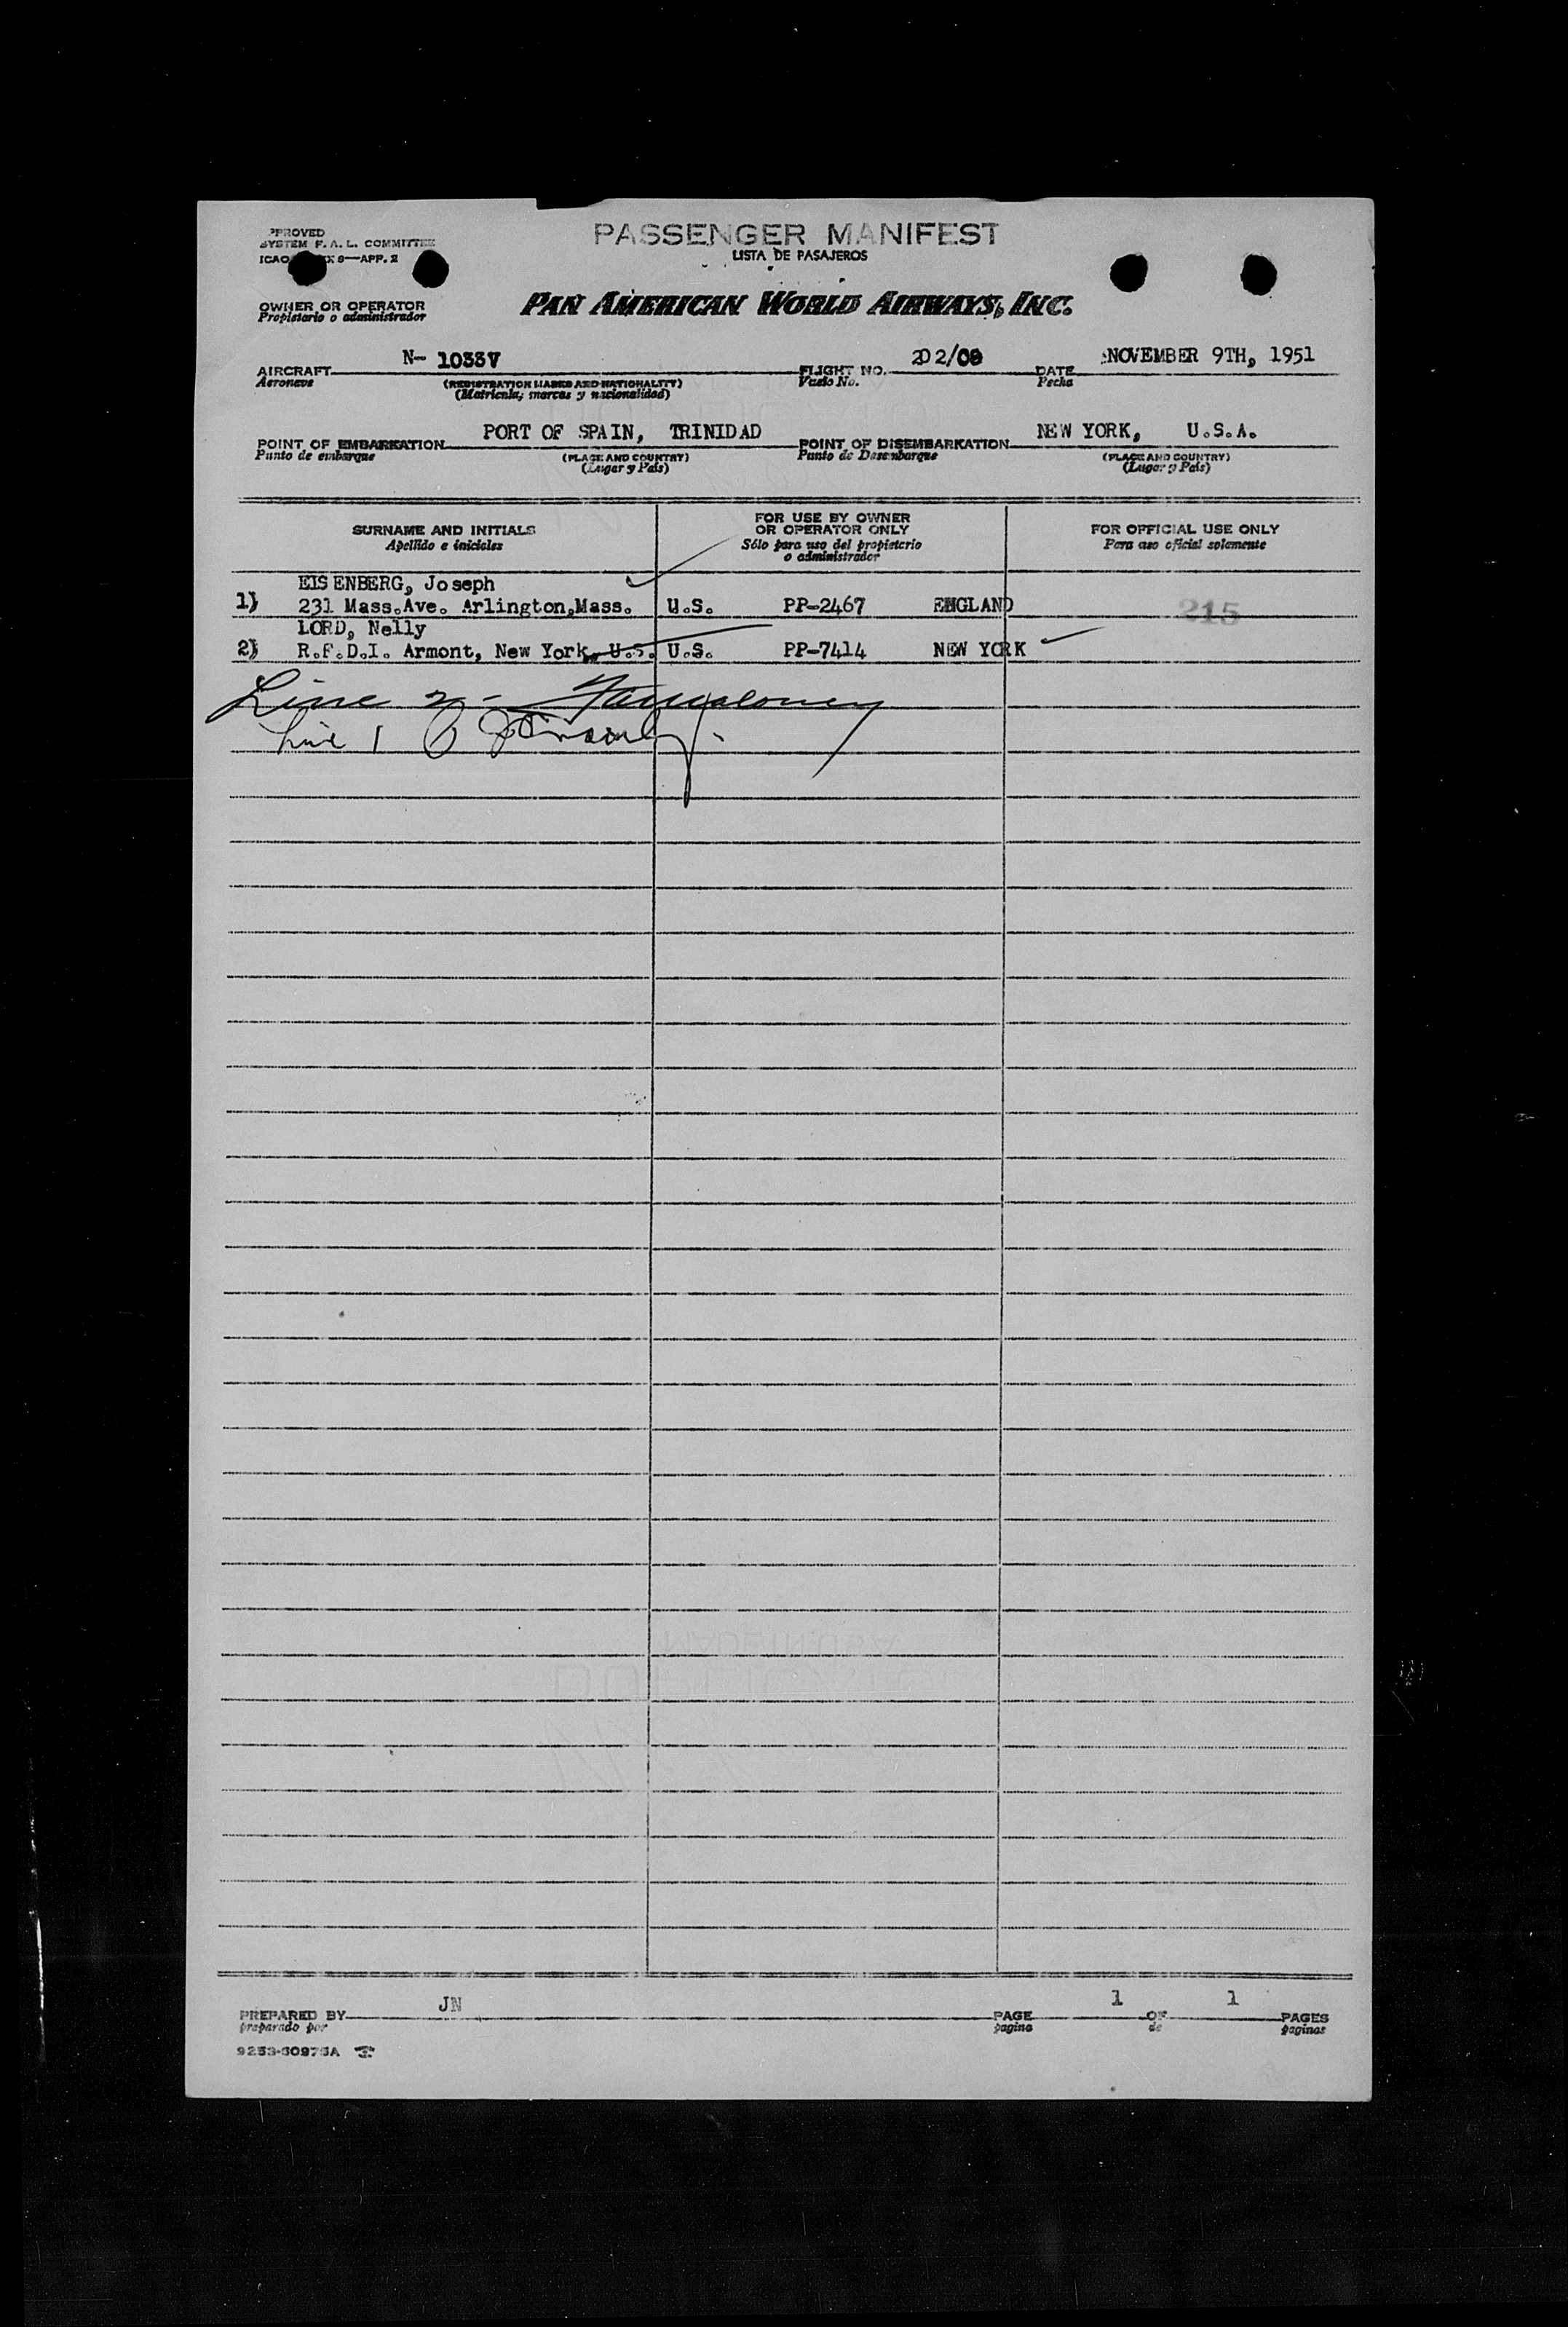 PPROVED
SYSTEM F. A. L. COMMITTEE
ICAO X 9—APP. 2
PASSENGER MANIFEST
LISTA DE PASAJEROS
OWNER OR OPERATOR
Propietario o administrador
PAN AMERICAN WORLD AIRWAYS, INC.
AIRCRAFT N- 1033V FLIGHT NO. 202/09 DATE NOVEMBER 9TH, 1951
Aeronave (REGISTRATION MARKS AND NATIONALITY) Vuelo No. Fecha
(Matricula, marcas y nacionalidad)
POINT OF EMBARKATION PORT OF SPAIN, TRINIDAD POINT OF DISEMBARKATION NEW YORK, U.S.A.
Punto de embarque (PLACE AND COUNTRY) Punto de Desenbarque (PLACE AND COUNTRY)
(Lugar y País) (Lugar y País)
SURNAME AND INITIALS FOR USE BY OWNER OR OPERATOR ONLY FOR OFFICIAL USE ONLY
Apellido e iniciales Sólo para uso del propietario o administrador Para uso oficial solamente
EISENBERG, Joseph
1) 231 Mass.Ave. Arlington,Mass. U.S. PP-2467 ENGLAND 215
LORD, Nelly
2) R.F.D.I. Armont, New York, U.S. U.S. PP-7414 NEW YORK
Line 2 -
Line 1
PREPARED BY JN PAGE 1 OF 1 PAGES
preparado por pagina de paginas
9253-60975A